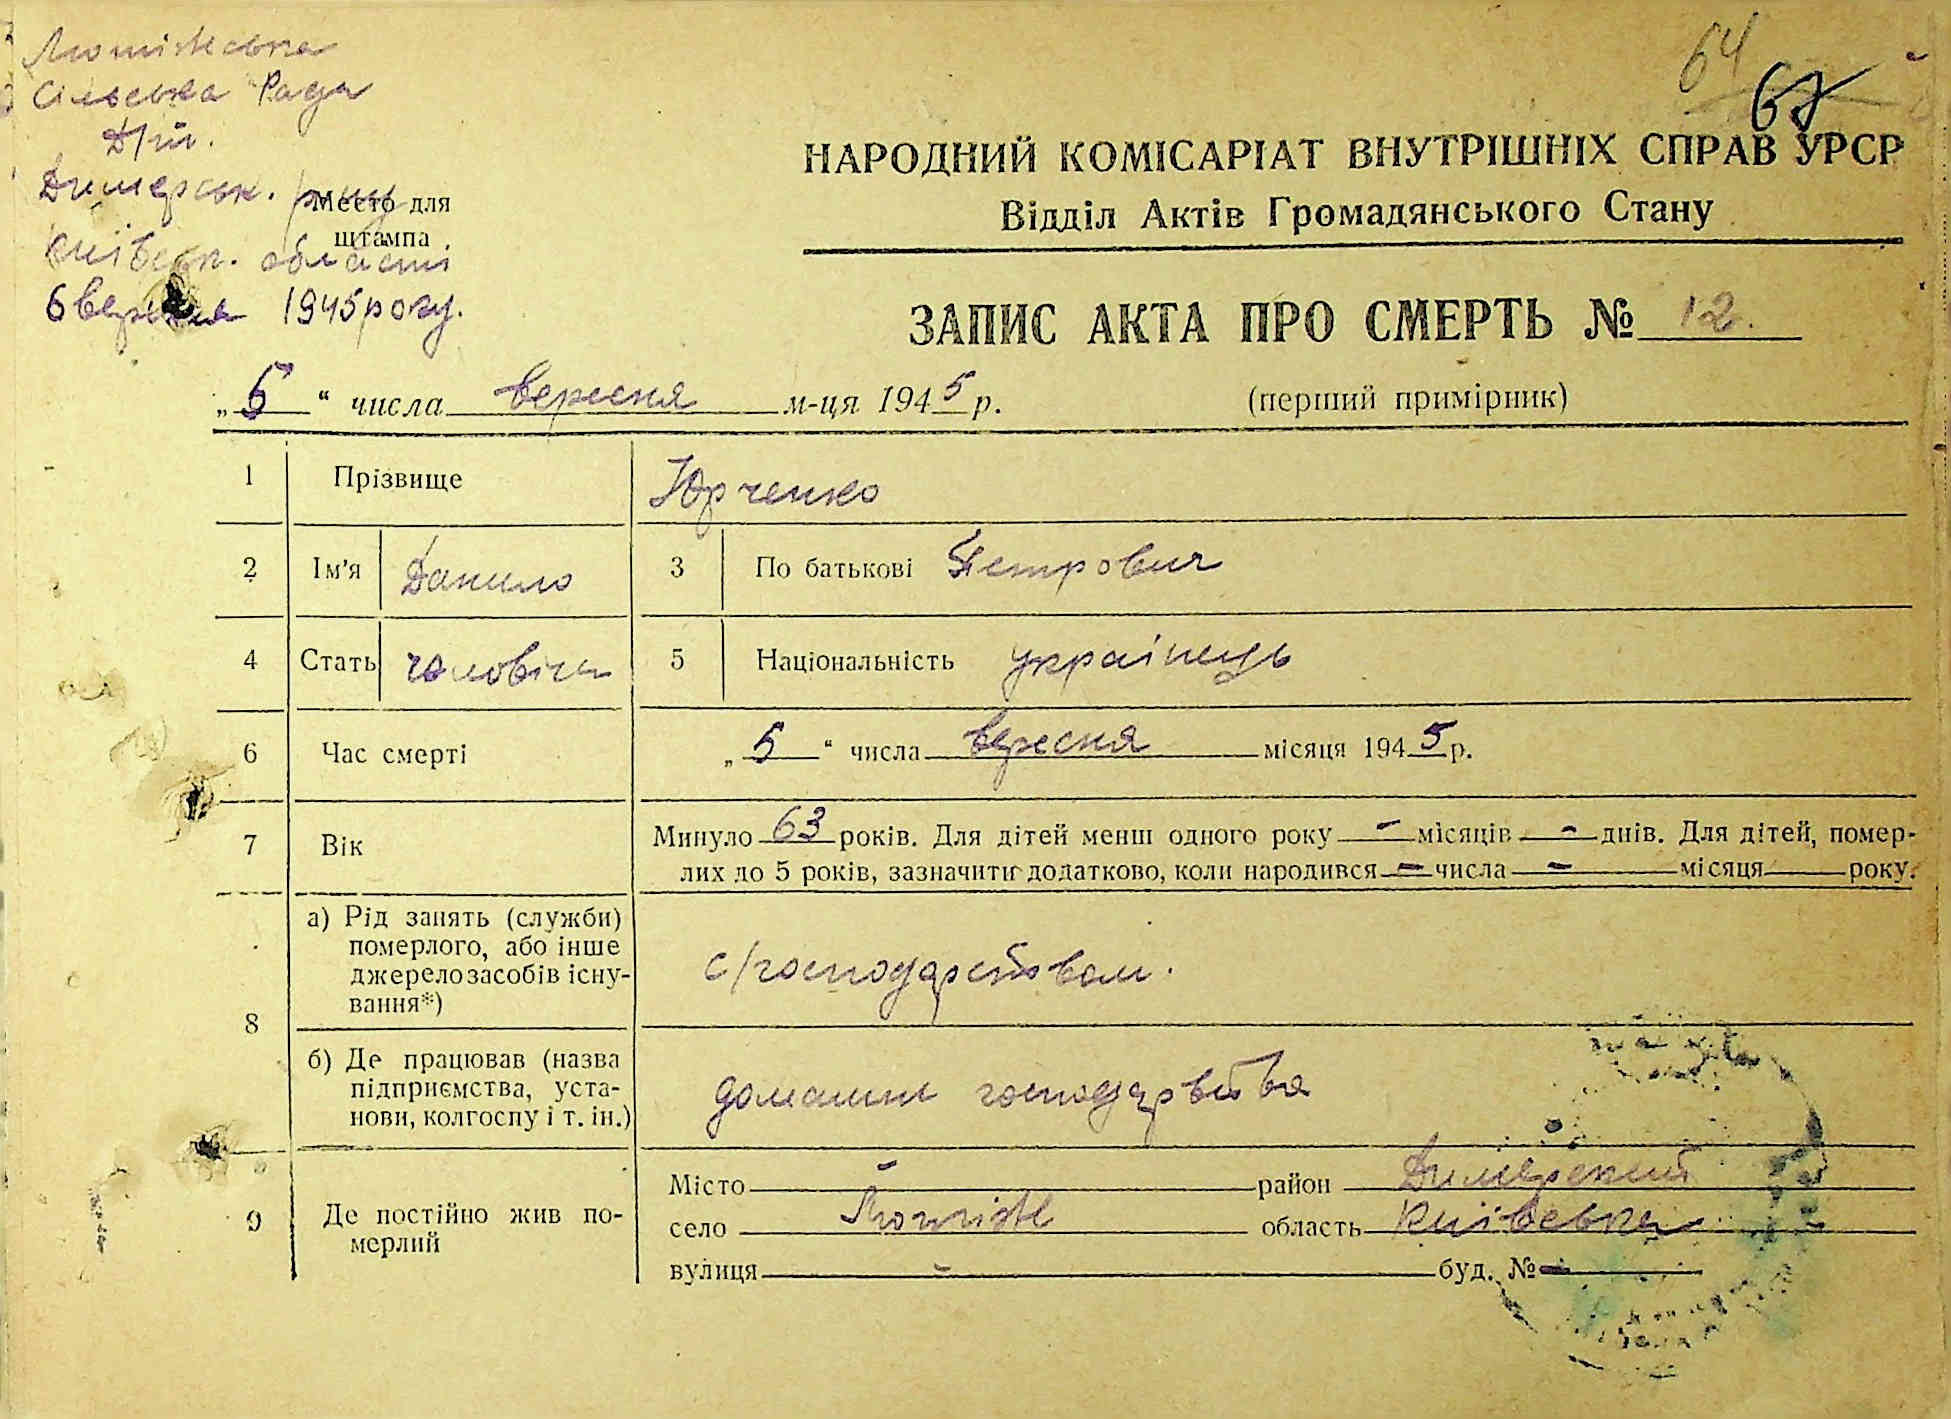 Лютіжська
Сільська Рада
Д/рт.
Димерськ. р-ну
Київськ. області
6 вересня 1945 року.
Место для
штампа
64
67
НАРОДНИЙ КОМІСАРІАТ ВНУТРІШНІХ СПРАВ УРСР
Відділ Актів Громадянського Стану
ЗАПИС АКТА ПРО СМЕРТЬ № 12.
„6“ числа вересня м-ця 1945 р. (перший примірник)
1 Прізвище Юрченко
2 Ім'я Данило 3 По батькові Петрович
4 Стать чоловіча 5 Національність українець
6 Час смерті „5“ числа вересня місяця 1945 р.
7 Вік Минуло 63 років. Для дітей менш одного року - місяців - днів. Для дітей, помер-
лих до 5 років, зазначити додатково, коли народився - числа - місяця року.
8 а) Рід занять (служби)
померлого, або інше
джерело засобів існу-
вання*)
с/господарством.
б) Де працював (назва
підприємства, уста-
нови, колгоспу і т. ін.)
домашнє господарства
9 Де постійно жив по-
мерлий
Місто - район Димерський
село Лютіж область Київська
вулиця - буд. № -